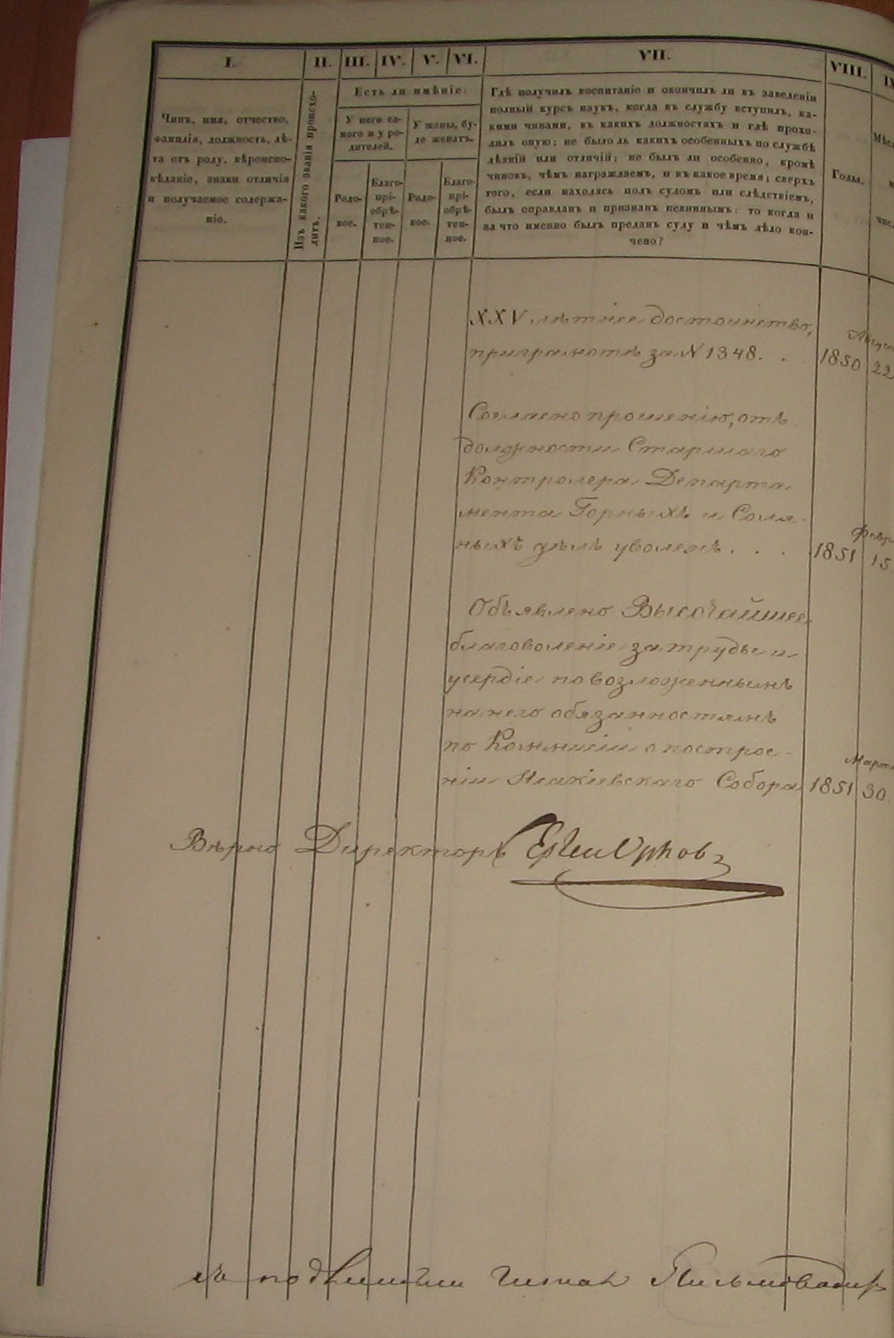 I. II. III. IV. V. VI. VII. VIII.
Чинъ, имя, отчество,
фамилія, должность, лѣ-
та отъ роду, вѣроиспо-
вѣданіе, знаки отличія
и получаемое содержа-
ніе.
Изъ какого званія происхо-
дитъ.
Есть ли имѣніе:
У него са-
мого и у ро-
дителей.
У жены, бу-
де женатъ.
Родо-
вое.
Благо-
прі-
обрѣ-
тен-
ное.
Родо-
вое.
Благо-
прі-
обрѣ-
тен-
ное.
Гдѣ получилъ воспитаніе и окончилъ ли въ заведеніи
полный курсъ наукъ, когда въ службу вступилъ, ка-
кими чинами, въ какихъ должностяхъ и гдѣ прохо-
дилъ оную; не было ль какихъ особенныхъ по службѣ
дѣяній или отличій; не былъ ли особенно, кромѣ
чиновъ, чѣмъ награждаемъ, и въ какое время; сверхъ
того, если находясь подъ судомъ или слѣдствіемъ,
былъ оправданъ и признанъ невиннымъ: то когда и
за что именно былъ преданъ суду и чѣмъ дѣло кон-
чено?
Годы.
XXV лѣтнее достоинство,
при грамотѣ за N 1348. . 1850 22
Согласно прошенію, отъ
должности Старшаго
Контролера Департа
мента Горныхъ и Соля-
ныхъ дѣлъ уволенъ . . . 1851 15
Объявлено Высочайшее
благоволеніе за труды и
усердіе по возложеннымъ
на него обязанностямъ
по Коммисіи о построе-
ніи Исакіевскаго Собора 1851 30
Вѣрно Директоръ